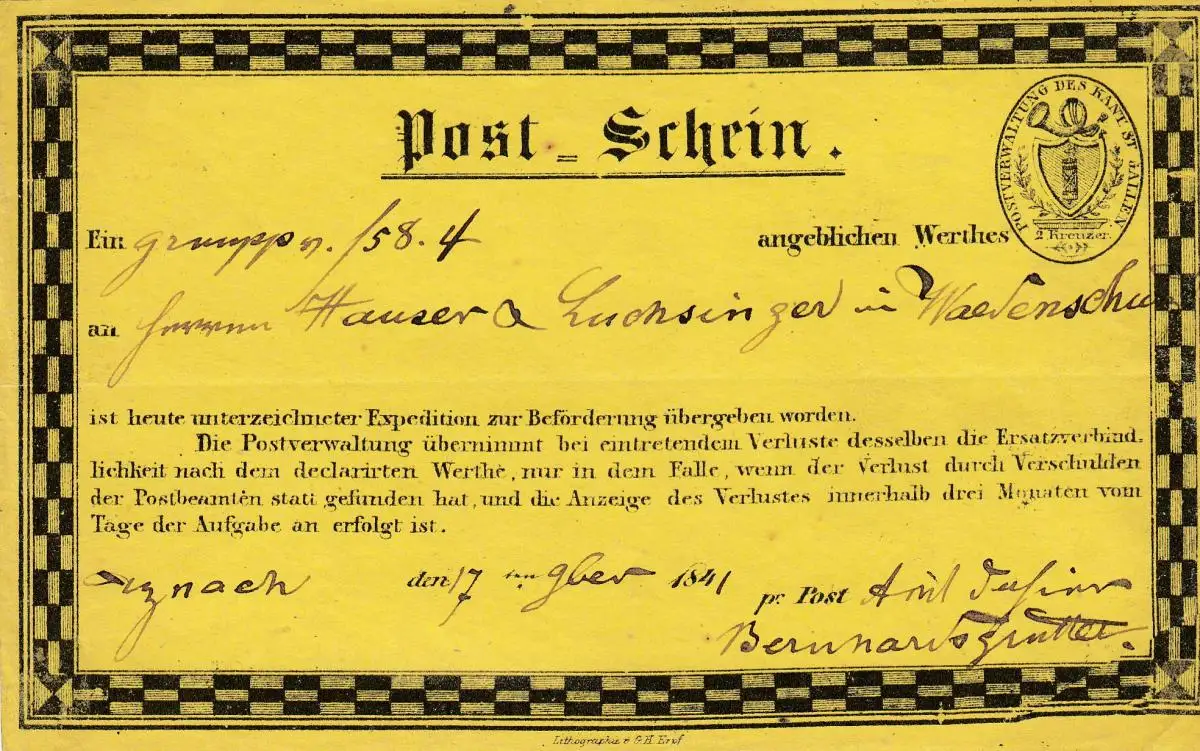 Post=Schein.
POSTVERWALTUNG DES KANT. ST GALLEN.
2 Kreuzer.
Ein grupp v. f58.4 angeblichen Werthes
an Herren Hauser & Luchsinger in Waedenschw
ist heute unterzeichneter Expedition zur Beförderung übergeben worden.
Die Postverwaltung übernimmt bei eintretendem Verluste desselben die Ersatzverbind=
lichkeit nach dem declarirten Werthe, nur in dem Falle, wenn der Verlust durch Verschulden
der Postbeamten statt gefunden hat, und die Anzeige des Verlustes innerhalb drei Monaten vom
Tage der Aufgabe an erfolgt ist.
Uznach den 17 ten 9ber 1841 pr Post
Bernhardsgrütter.
Lithographie v G.H. Erpf